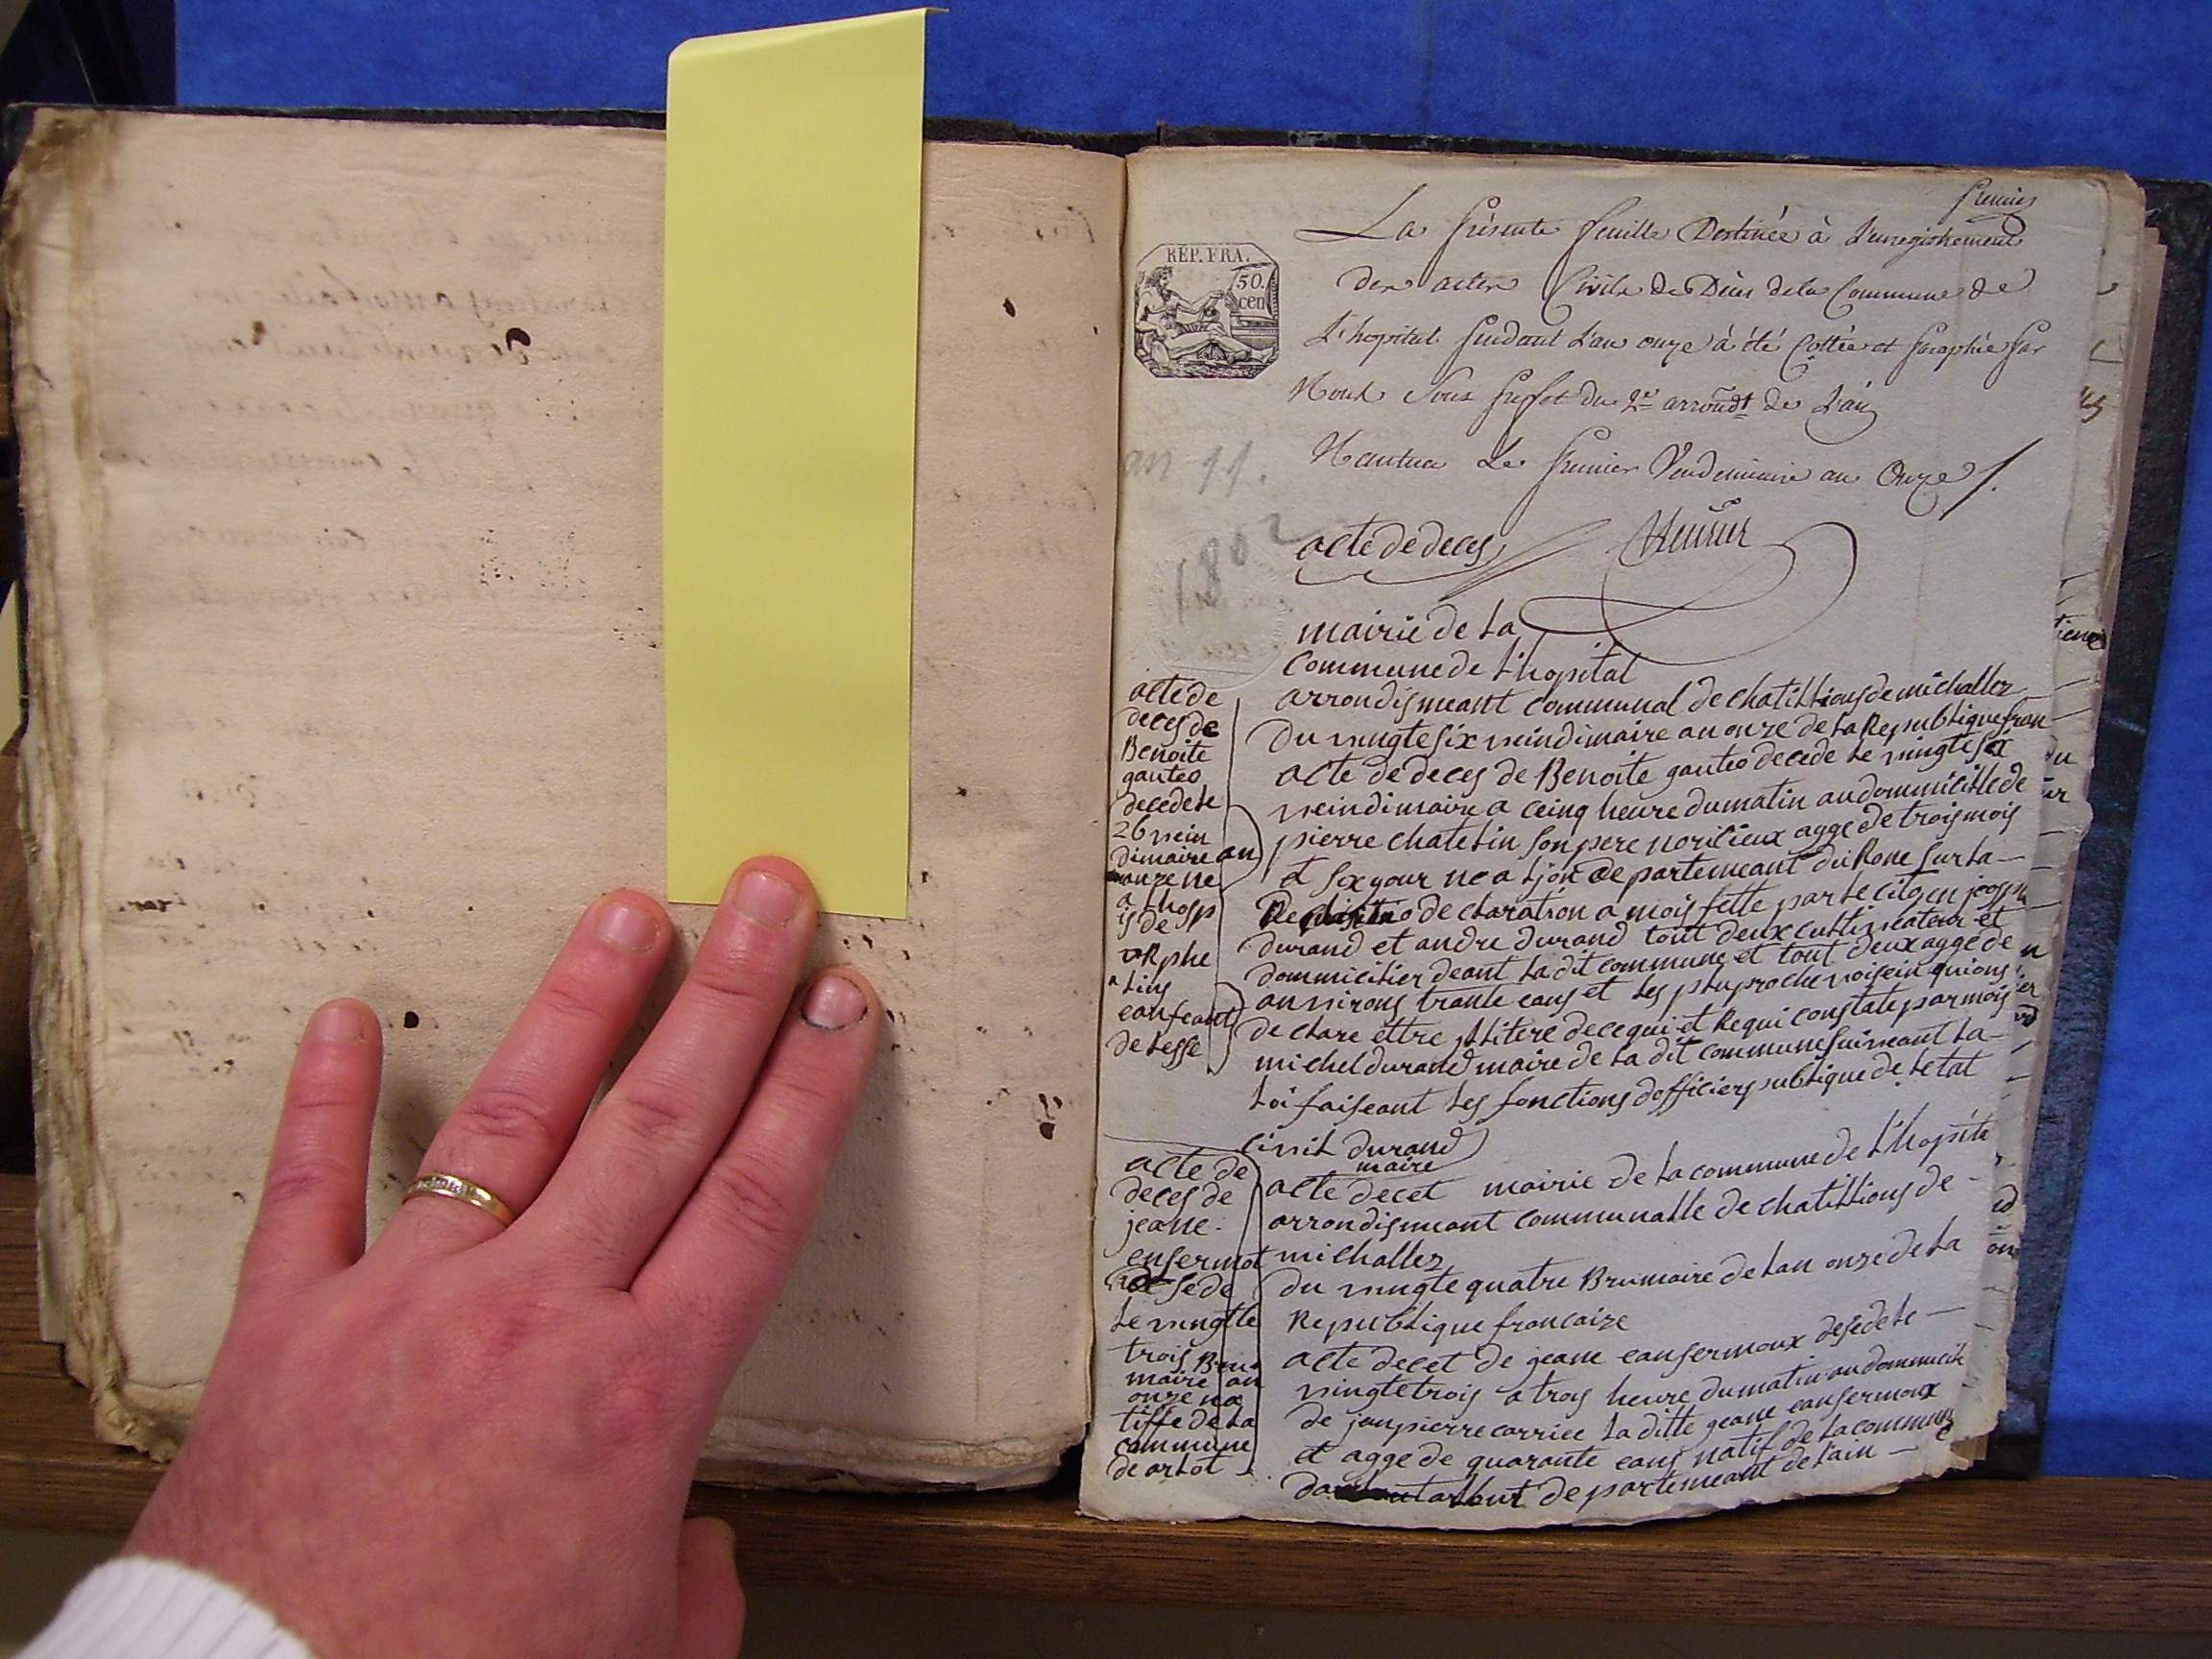 premier
La présente feuille Destinée à L'enregistrement
des actes Civils de Décès de la Commune de
L'hopital pendant L'an onze à été Cottée et paraphée par
Nous Sous prefet du 2e arrondt de L'ain
Nantua Le premier Vendemiaire an Onze
REP. FRA.
50.
cen
an 11.
1802
acte de deces
mairie de La
Commune de L'hopital
arrondisment communal de chatillions de michallez
Du vingte six veindimaire an onze de La Republique fran
acte de deces de Benoite gauteo decede Le vingte six
veindimaire a ceinq heure dumatin au dommicille de
pierre chatelin son pere noricieux agge de trois mois
et six your ne a Ljon departemeant du Rone sur La
declaration a mois fette par Le citoyen joosph
durand et andre durand tout deux cultivateur et
dommicilier deant La dit commune et tout deux agge de
anvirons trante eans et Les plu proche voisein quions
de clare ettre
michel durand maire de La dit commune suiveant La
Loi faiseant Les fonctions dofficier publique de Letat
civil durand
maire
acte de
deces de
Benoite
gauteo
decede Le
26 vein
dimaire an
onze ne
a Lhosp
is de
orphe
Lins
eanfeant
de Lesse
acte decet mairie de La commune de L'hopita
arrondisment communalle de chatillions de
michallez
du vingte quatre Brumaire de Lan onze de La
Republique francaize
acte decet de jeane eanfermoux desede Le
vingte trois a troys heure dumatin au dommicile
de janpierre carriee La ditte jeane eanfermoux
et agge de quarante eans natif de La commune
departemeant de Lain
acte de
deces de
jeane
enfermot
desede
Le vingtte
trois Bru
maire an
onze na
tiffe de La
commune
de arlot